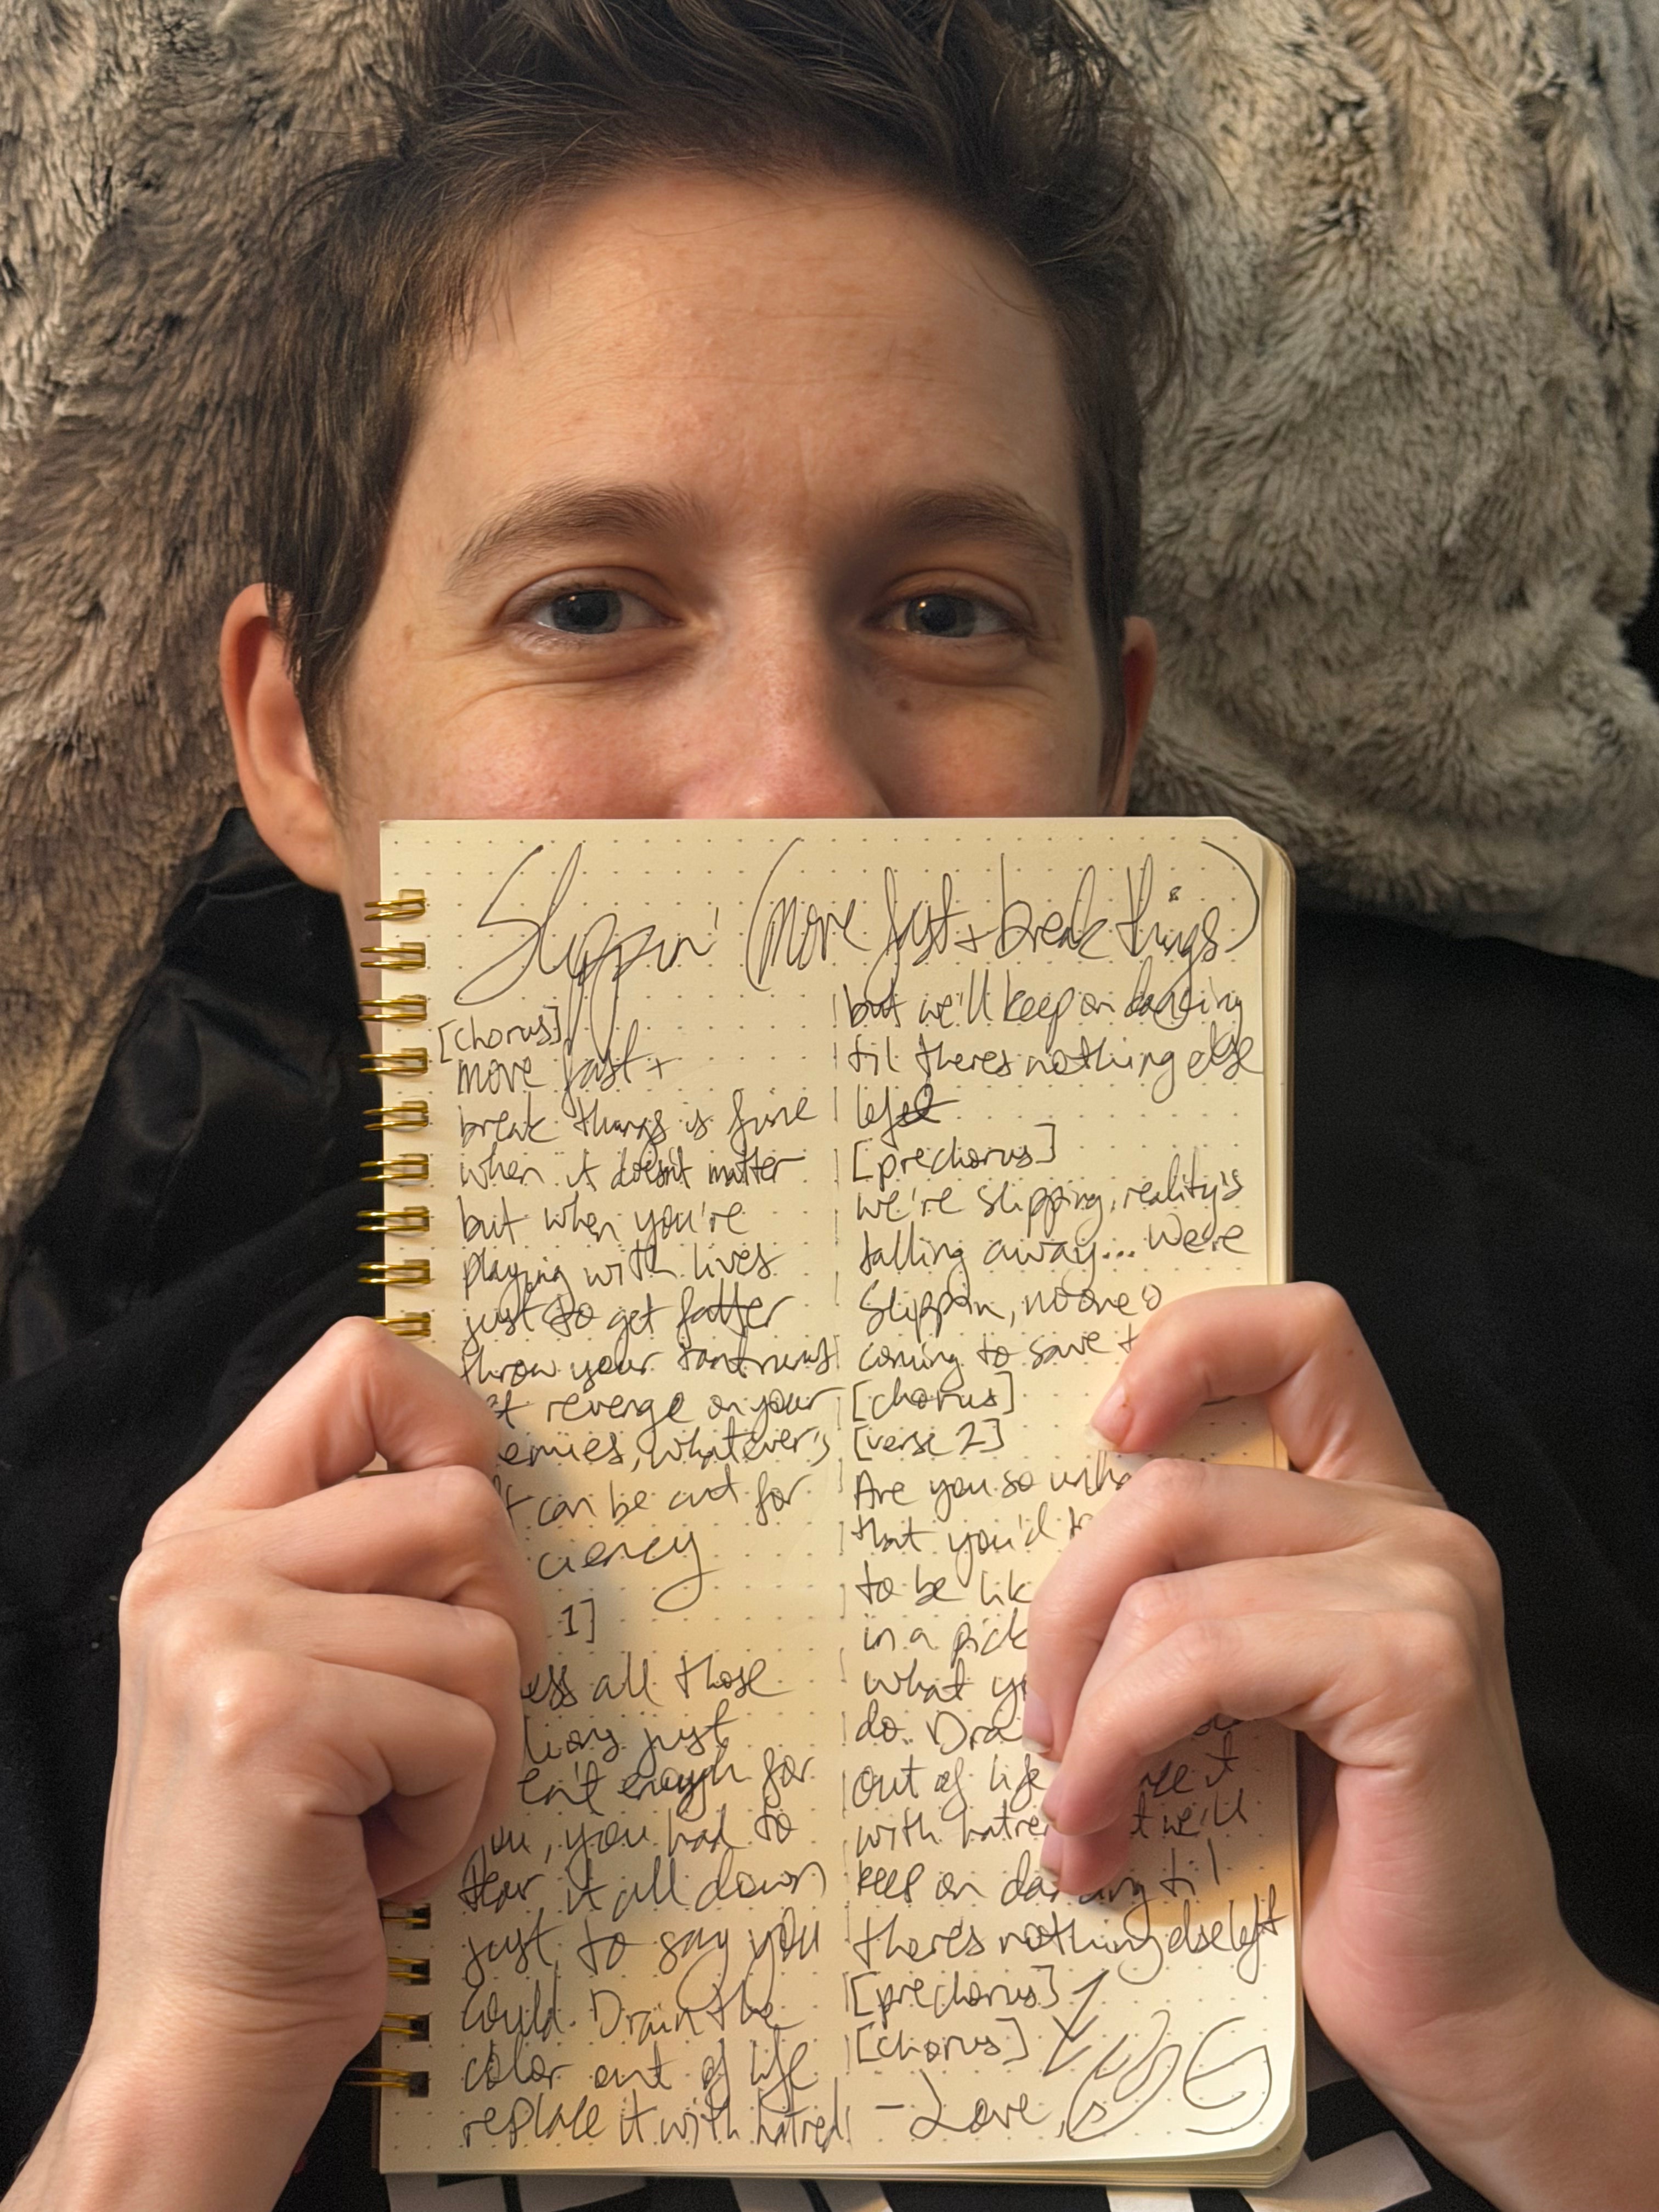 Slippin' (move fast + break things)
[chorus]
move fast +
break things is fine
when it doesn't matter
but when you're
playing with lives
just to get fatter
throw your tantrums
revenge on your
emies, whatever's
can be cut for
ciency
1]
ess all those
lions just
en't enough for
you, you had to
tear it all down
just to say you
could. Drain the
color out of life
replace it with hatred
but we'll keep on dancing
til theres nothing else
left
[prechorus]
we're slipping, reality's
falling away... We're
Slippin, no one's
coming to save
[chorus]
[verse 2]
Are you so
that you'd
to be lik
in a pick
what
do. Dra
out of life it
with hatred we'll
keep on dancing til
there's nothing else left
[prechorus]
[chorus]
- Love,